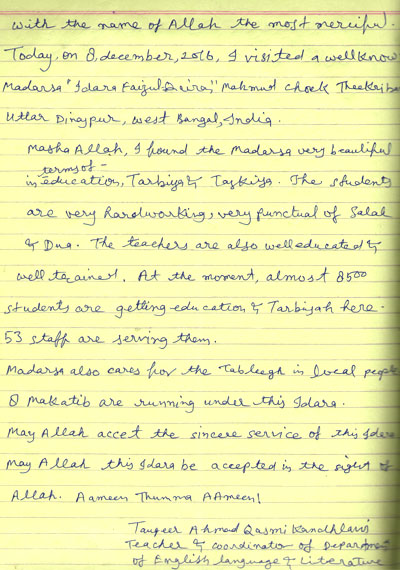 with the name of Allah the most merciful.
Today, on 8, december, 2016, I visited a well know
Madarsa "Idara Faizul Qaira" Mahmud Chock Theekri
Uttar Dinajpur, West Bangal, India.
Masha Allah, I found the Madarsa very beautiful
terms of
in education, Tarbiya & Tazkiya. The students
are very hardworking, very punctual of Salah
& Dua. The teachers are also well educated &
well trained. At the moment, almost 8500
students are getting education & Tarbiyah here.
53 staff are serving them.
Madarsa also cares for the Tableegh in local people
8 Makatib are running under this Idara.
May Allah accet the sincere service of this Idara
May Allah this Idara be accepted in the sight of
Allah. Aameen Thumma AAmeen!
Tauqeer Ahmad Qasmi Kandhlawi
Teacher & coordinator of Department
of English language & Literature